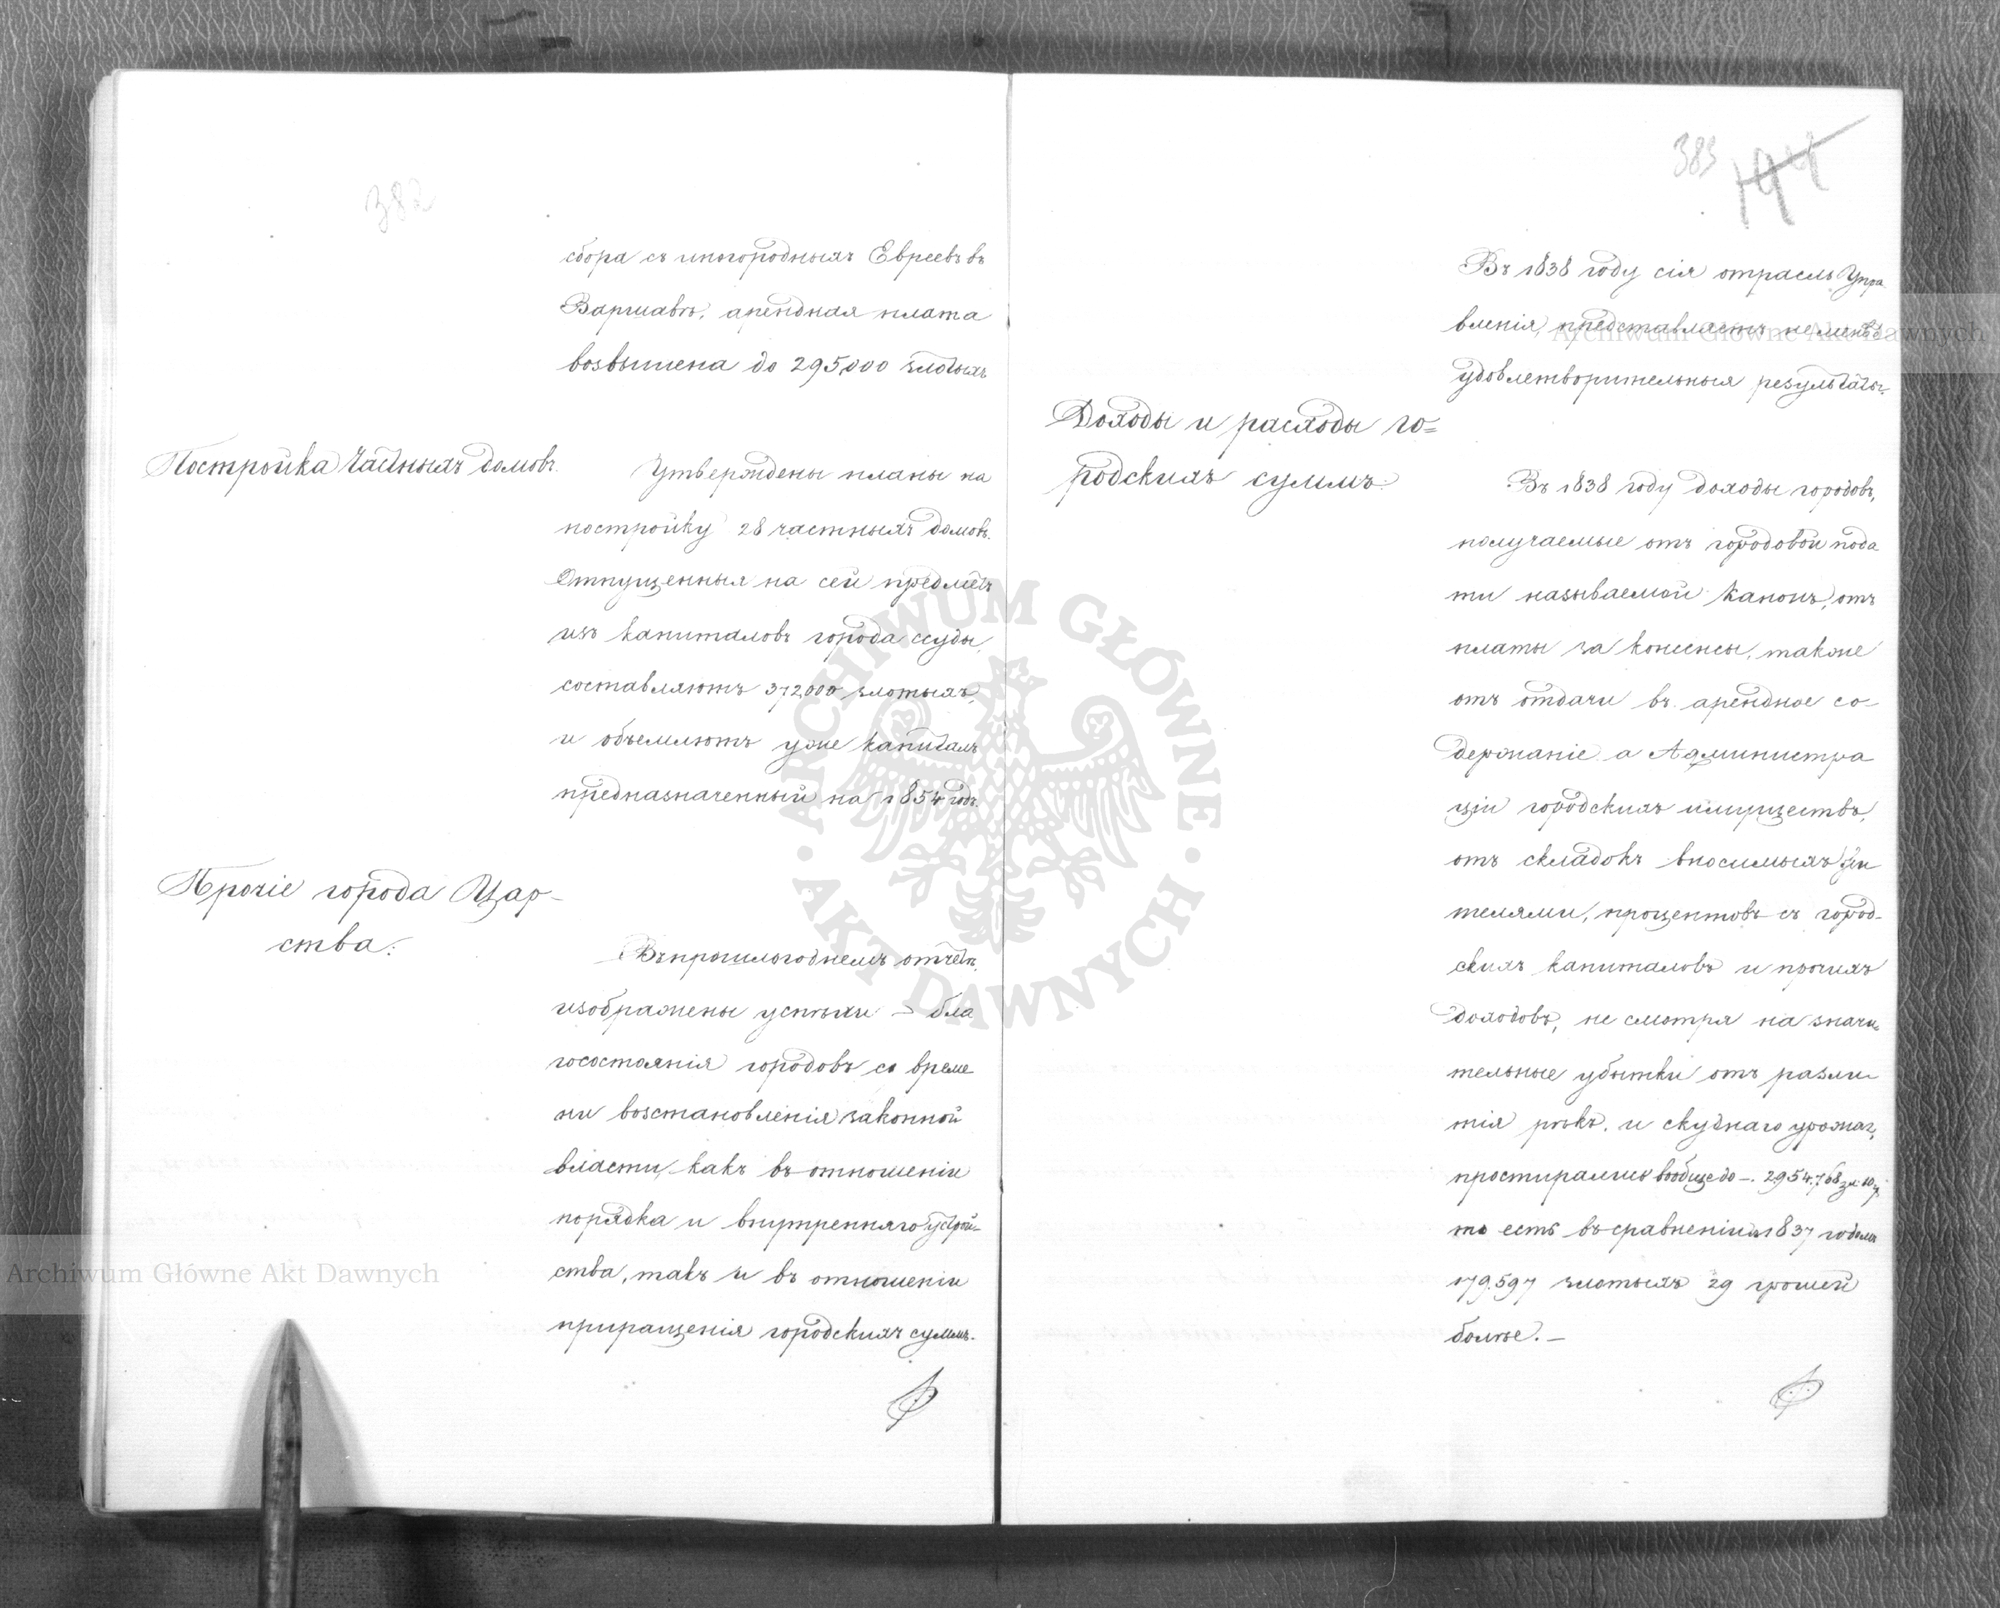 382
сбора съ иногородныхъ Евреевъ въ
Варшавѣ, арендная плата
возвышена до 295,000 злотыхъ
Постройка частныхъ домовъ.
Утверждены планы на
постройку 28 частныхъ домовъ.
Отпущенныя на сей предметъ
изъ капиталовъ города ссуды,
составляютъ 372,000 злотыхъ,
и объемлютъ уже капиталъ
предназначенный на 1854 годъ.
Прочіе города Цар-
ства.
Въ прошлогоднемъ отчетѣ,
изображены успѣхи - бла
госостоянія городовъ со време
ни возстановленія законной
власти, какъ въ отношеніи
порядка и внутренняго устрой-
ства, такъ и въ отношеніи
приращенія городскихъ суммъ.
383
194
Въ 1838 году сія отрасль Упра
вленія, представляетъ не менѣе
удовлетворительныя результаты.
Доходы и расходы го=
родскихъ суммъ.
Въ 1838 году доходы городовъ,
получаемые отъ городовой пода
ти называемой канонъ, отъ
платы за консенсы, также
отъ отдачи въ арендное со-
держаніе а Администра
ціи городскихъ имуществъ,
отъ складокъ вносимыхъ жи
телями, процентовъ съ город-
скихъ капиталовъ и прочихъ
доходовъ, не смотря на значи-
тельные убытки отъ разли-
тія рѣкъ. и скуднаго урожая,
простирались вообще до -. 2.954.768 зл. 10 г.
то есть въ сравненіи съ 1837 годомъ
179.597 злотыхъ 29 грошей
болѣе. -
Archiwum Główne Akt Dawnych
Archiwum Główne Akt Dawnych
ARCHIWUM GŁÓWNE · AKT DAWNYCH ·